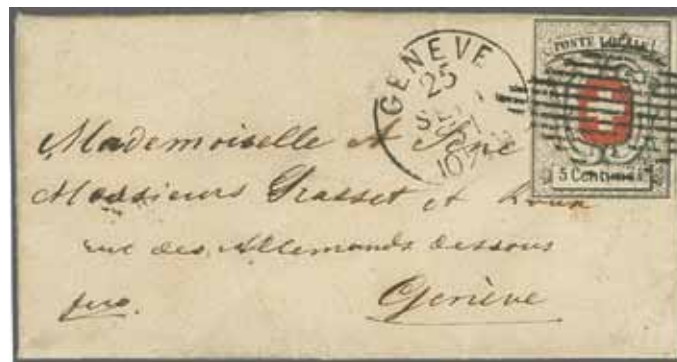 GENEVE
25
SEPT
10
POSTE LOCALE
5 Centimes
Mademoiselle A
Messieurs Grasset et Roux
rue des Allemands dessous
Genève